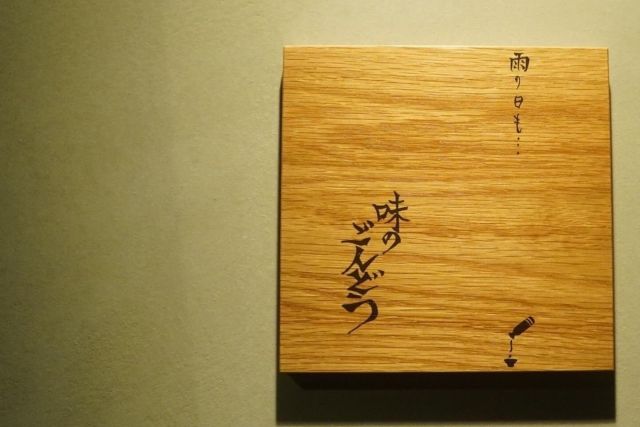 雨の日も…
味の
ごんどう